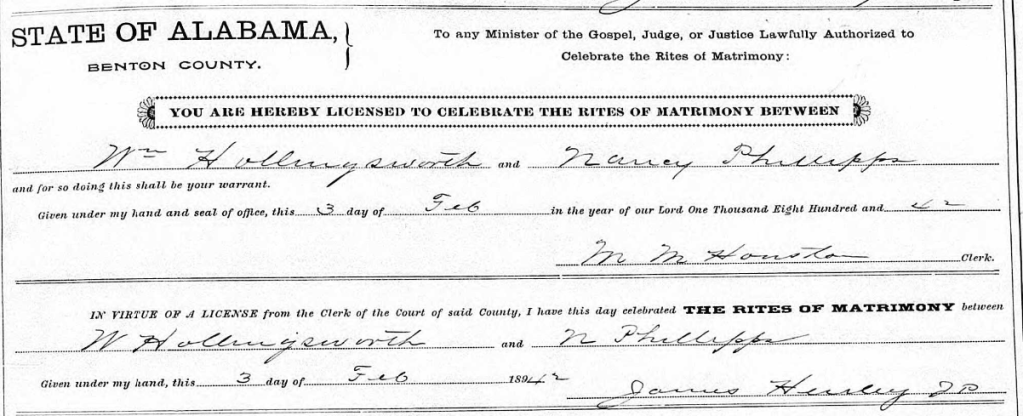 STATE OF ALABAMA,
BENTON COUNTY.
To any Minister of the Gospel, Judge, or Justice Lawfully Authorized to
Celebrate the Rites of Matrimony:
YOU ARE HEREBY LICENSED TO CELEBRATE THE RITES OF MATRIMONY BETWEEN
Wm Hollingsworth and Nancy Phillipps
and for so doing this shall be your warrant.
Given under my hand and seal of office, this 3 day of Feb in the year of our Lord One Thousand Eight Hundred and 42
M M Houston Clerk.
IN VIRTUE OF A LICENSE from the Clerk of the Court of said County, I have this day celebrated THE RITES OF MATRIMONY between
W Hollingsworth and N Phillipps
Given under my hand, this 3 day of Feb 18942
James Henley JP